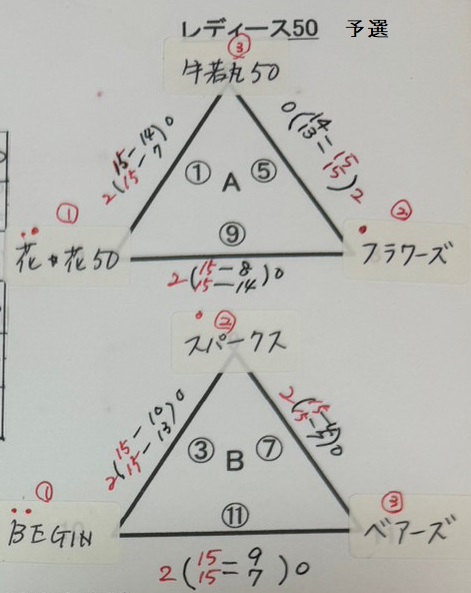 レディース50 予選
③
牛若丸50
2(15-14 15-7)0
0(14-15 13-15)2
① A ⑤
①
②
花*花50
⑨
フラワーズ
2(15-8 15-14)0
②
スパークス
2(15-10 15-13)0
③ B ⑦
①
③
BEGIN
⑪
ベアーズ
2(15-9 15-7)0